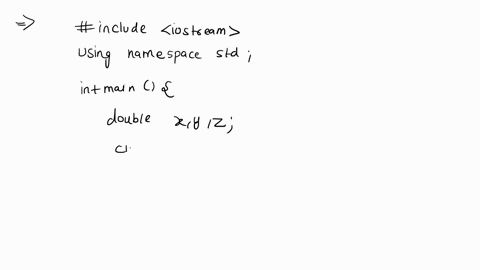 => #include <iostream>
using namespace std;
int main () {
double x,y,z;
c